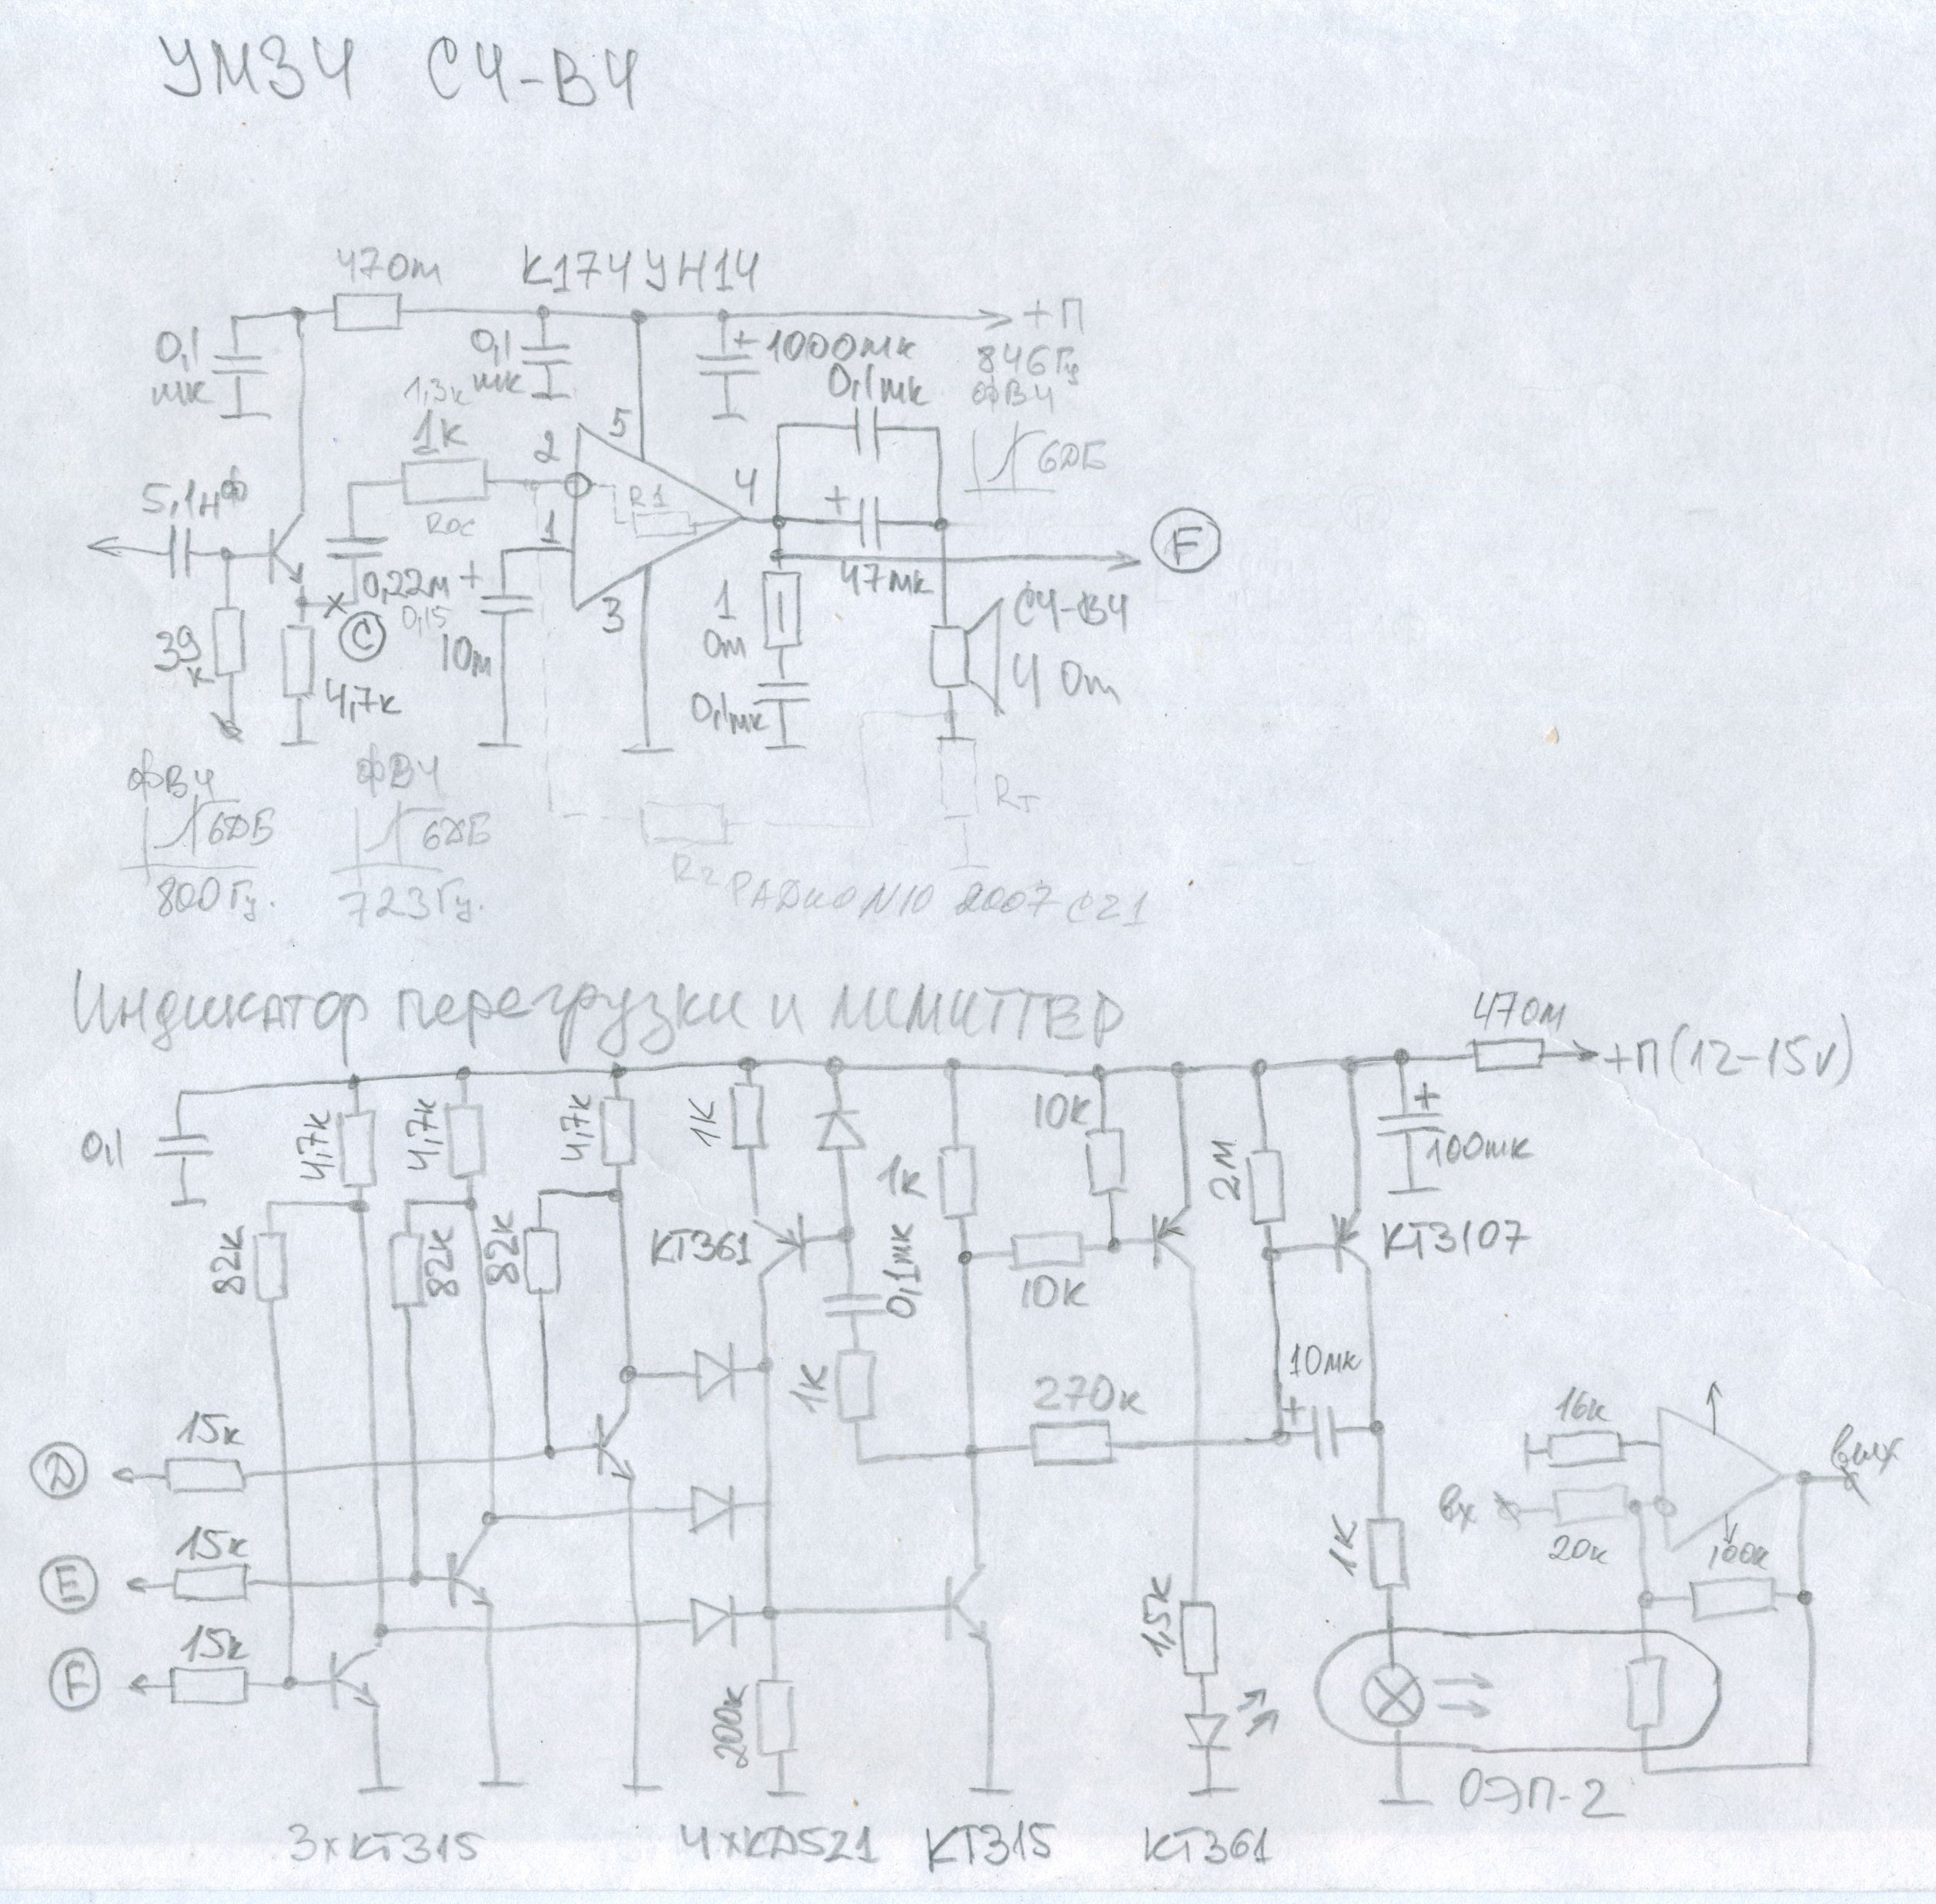 УМЗЧ СЧ-ВЧ
47Ом К174УН14
+П
0,1 мк
0,1 мк
+ 1000мк
846Гц
ФВЧ
6ДБ
0,1мк
1,3к
1к
2
5
4
1
3
R1
Rос
5,1нФ
+
47мк
F
0,22м
0,15
+
10м
C
39 к
4,7к
1 Ом
0,1мк
СЧ-ВЧ
4 Ом
ФВЧ
6ДБ
800Гц.
ФВЧ
6ДБ
723Гц.
Rт
R2
РАДИО N10 2007 С21
Индикатор перегрузки и ЛИМИТТЕР
47Ом
+П(12-15V)
0,1
4,7к
4,7к
4,7к
1К
1к
10к
2м
+
100мк
82к
82к
82к
КТ361
0,1мк
10к
КТ3107
1К
270к
10мк
+
D
15к
E
15к
F
15к
16к
вх
20к
100к
вых
1К
1,5к
200к
ОЭП-2
3хКТ315
4хКД521
КТ315
КТ361